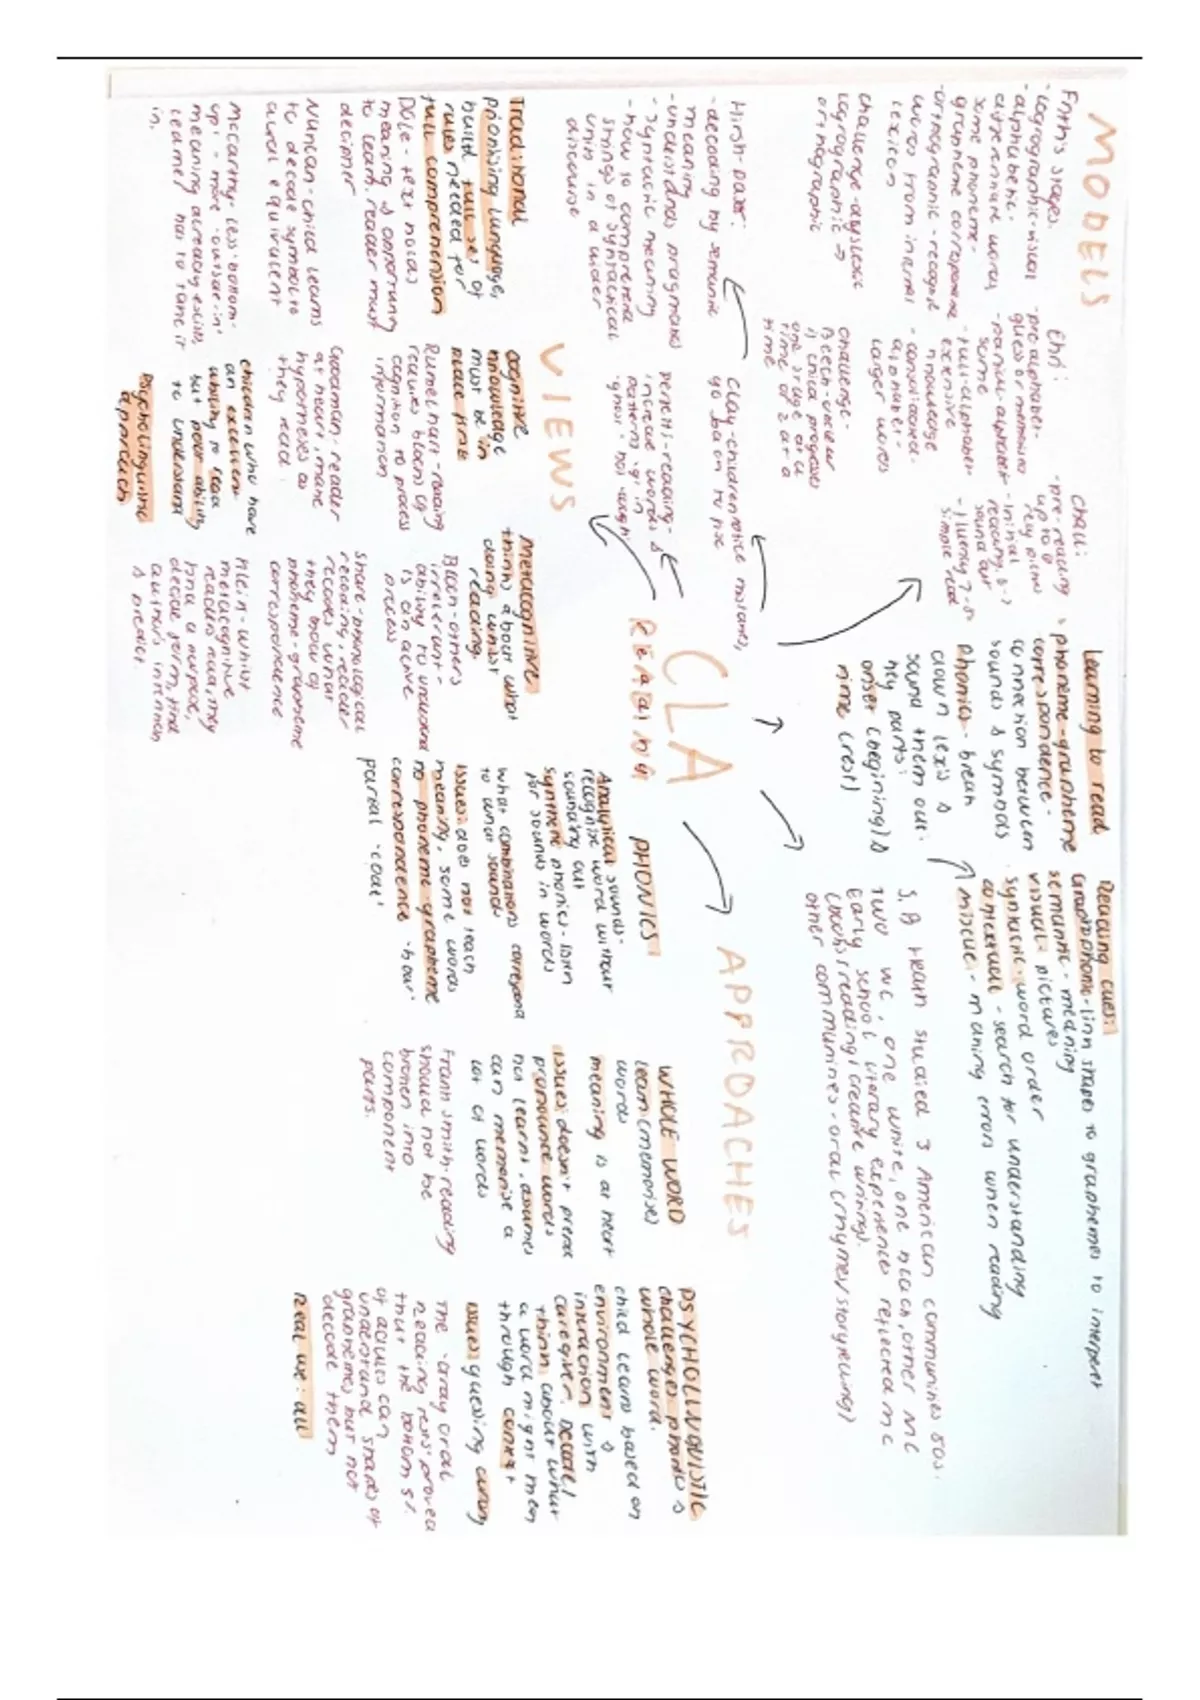 MODELS
Frith's stages:
-logographic-visual
-alphabetic-
differentiate words
some phoneme-
grapheme correspondence
-orthographic-recognise
words from internal
lexicon
challenge-dyslexic
logographic →
orthographic
Ehri:
-pre-alphabet-
guess or memorise
-partial-alphabet-
some
-full-alphabet-
extensive
knowledge
-consolidated-
alphabet-
larger words
challenge-
Beech-unclear
if child progresses
one stage at a
time or 2 at a
time
Chall:
-pre-reading
up to 6
rely pictures
-initial
reading 6-7
sound out
-fluency 7-8
simple read
Hirsh-pasek:
-decoding by semantic
meaning
-understands pragmatics
-syntactic meaning
-how to comprehend
strings of syntactical
units in a wider
discourse
Clay-children notice mistakes,
go back to fix
Peretti-reading-
increase words &
patterns
Learning to read
phoneme-grapheme
correspondence-
connection between
sounds & symbols
Phonics-break
down lexis &
sound them out:
key parts:
onset (begining) &
rime (rest)
Reading cues:
Graphophonic-link shapes to graphemes to interpret
semantic-meaning
visual-pictures
syntactic-word order
contextual-search for understanding
miscue-making errors when reading
S.B Heath studied 3 American communities 80s.
Two wc, one white, one black, other MC
Early school literary experiences reflected MC
(books/reading/creative writing).
other communities-oral (rhymes/storytelling)
CLA
READING
VIEWS
Traditional
prioritising language,
build full set of
rules needed for
full comprehension
Dole-text holds
meaning & opportunity
to learn, reader must
decipher
Nuncan-child learns
to decode symbols to
aural equivalent
McCarthy-less 'bottom-
up'-more 'outside-in'
meaning already exists,
learner has to take it
in.
Cognitive
knowledge
must be in
place first
Rumelhart-reading
requires blocks of
cognition to process
information
Goodman-reader
at heart, make
hypotheses as
they read
children who have
an excellent
ability to read
but poor ability
to understand
Psycholinguistic
approach
Metacognitive
thinks about what
doing whilst
reading.
Block-others
irrelevant-
ability to understand
is an active
process
Share-phonological
recoding, reader
recodes what
they know of
phoneme-grapheme
correspondence
Klein-whilst
metacognitive
readers read, they
find a purpose,
decide form, find
author's intention
& predict.
APPROACHES
PHONICS
Analytical sounds-
recognise word without
sounding out
synthetic phonics-listen
for sounds in words
what combinations correspond
to what sounds
issues: does not teach
meaning, some words
no phoneme grapheme
correspondence-'hour'
partial-'coat'
WHOLE WORD
learn (memorises)
words
meaning is at heart
issues: doesn't
pronounce words
not learnt, assumes
can memorise a
lot of words
Frank Smith-reading
should not be
broken into
component
parts.
PSYCHOLINGUISTIC
challenges phonics &
whole word.
child learns based on
environment &
interaction with
caregiver. Decode/
think about what
a word might mean
through context
issues: guessing wrong
The 'Gray oral
reading tests' proved
that the bottom 5%
of adults can
understand shapes of
graphemes but not
decode them
Real use: all